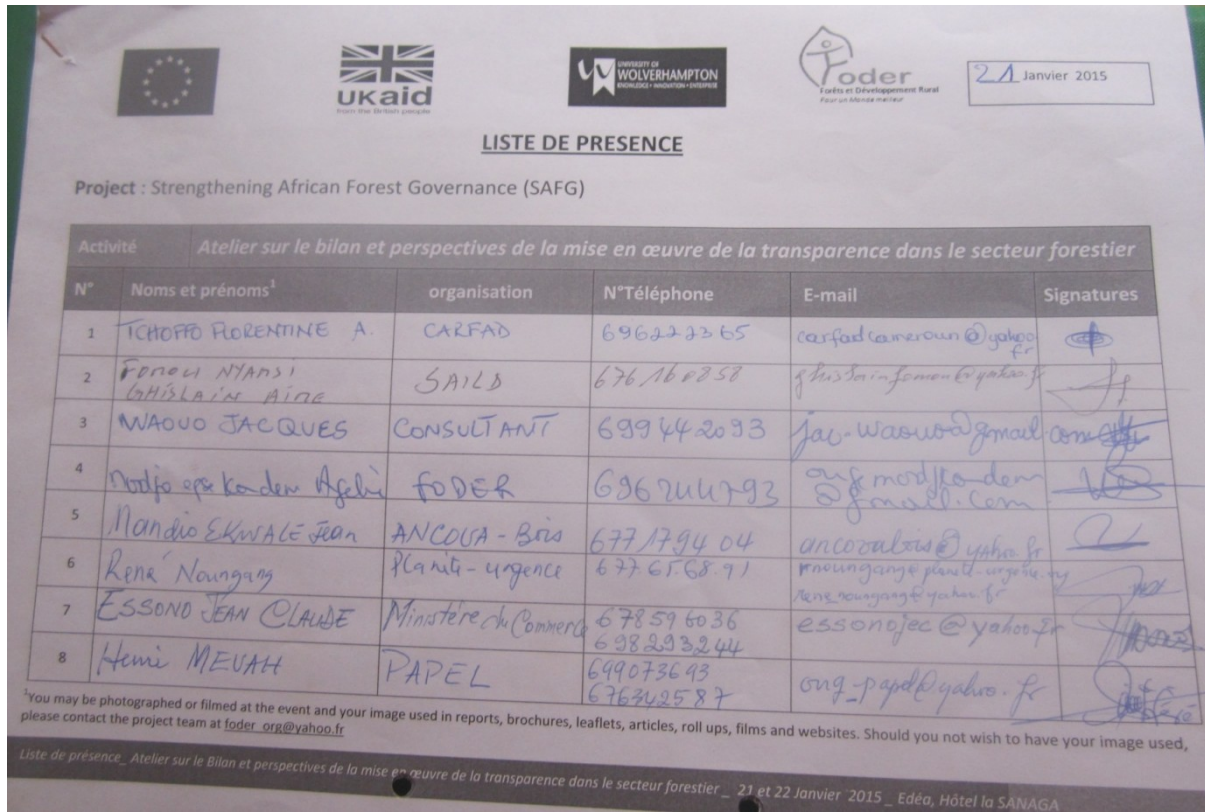 UKaid
from the British people
UNIVERSITY OF
WOLVERHAMPTON
KNOWLEDGE • INNOVATION • ENTERPRISE
Foder
Forêts et Développement Rural
Pour un Monde meilleur
21 Janvier 2015
LISTE DE PRESENCE
Project : Strengthening African Forest Governance (SAFG)
Activité Atelier sur le bilan et perspectives de la mise en œuvre de la transparence dans le secteur forestier
N° Noms et prénoms¹ organisation N°Téléphone E-mail Signatures
1 TCHOFFO FLORENTINE A. CARFAD 696222365 carfadcameroun@yahoo
fr
2 NYAMSI SAILD 676160858
GHISLAIN Aimé
3 WAOUO JACQUES CONSULTANT 699442093 jac-waouo@gmail.com
4 FODER
@gmail.com
5 EKWALE Jean ANCOVA-Bois 677179404 ancovabois@yahoo.fr
6 René Noungang Planète-urgence 677.65.68.91 rnoungang@planete-urgence.org
rene_noungang@yahoo.fr
7 ESSONO JEAN CLAUDE Ministère du Commerce 678596036 essonojec@yahoo.fr
698293244
8 Henri MEVAH PAPEL 699073693 ong_papel@yahoo.fr
676342587
¹You may be photographed or filmed at the event and your image used in reports, brochures, leaflets, articles, roll ups, films and websites. Should you not wish to have your image used,
please contact the project team at foder_org@yahoo.fr
Liste de présence_ Atelier sur le Bilan et perspectives de la mise en œuvre de la transparence dans le secteur forestier _ 21 et 22 Janvier 2015 _ Edéa, Hôtel la SANAGA